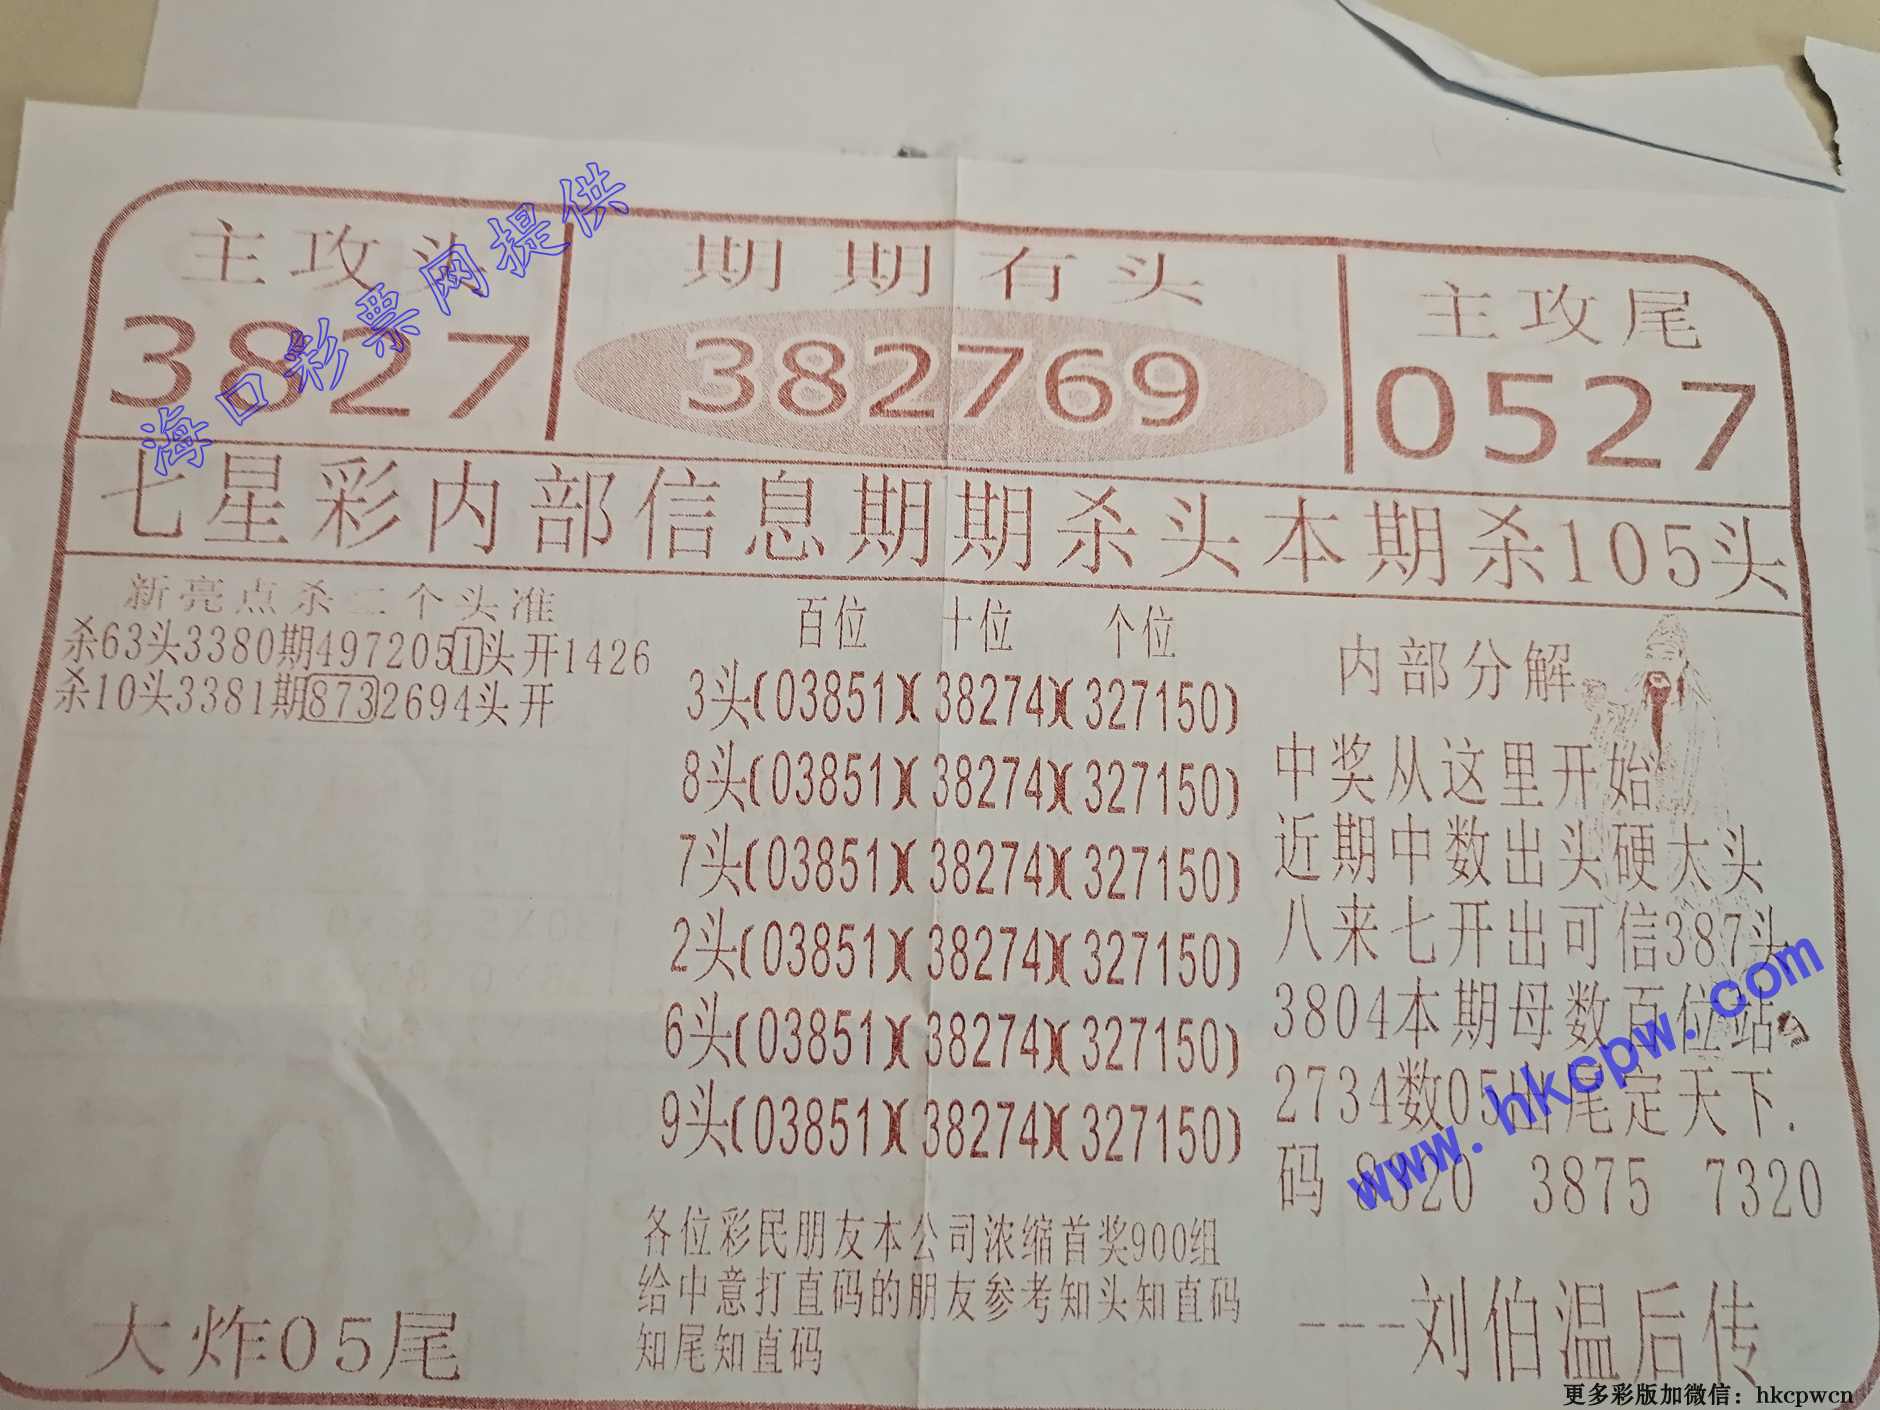 主攻头
3827
期期有头
382769
主攻尾
0527
海口彩票网提供
七星彩内部信息期期杀头本期杀105头
新亮点杀二个头准
杀63头3380期4972051头开1426
杀10头3381期8732694头开
大炸05尾
百位 十位 个位
3头(03851)(38274)(327150)
8头(03851)(38274)(327150)
7头(03851)(38274)(327150)
2头(03851)(38274)(327150)
6头(03851)(38274)(327150)
9头(03851)(38274)(327150)
各位彩民朋友本公司浓缩首奖900组
给中意打直码的朋友参考知头知直码
知尾知直码
内部分解
中奖从这里开始
近期中数出头硬太头
八来七开出可信387头
3804本期母数百位站
2734数05出尾定天下.
码 8320 3875 7320
---刘伯温后传
www.hkcpw.com
更多彩版加微信：hkcpwcn